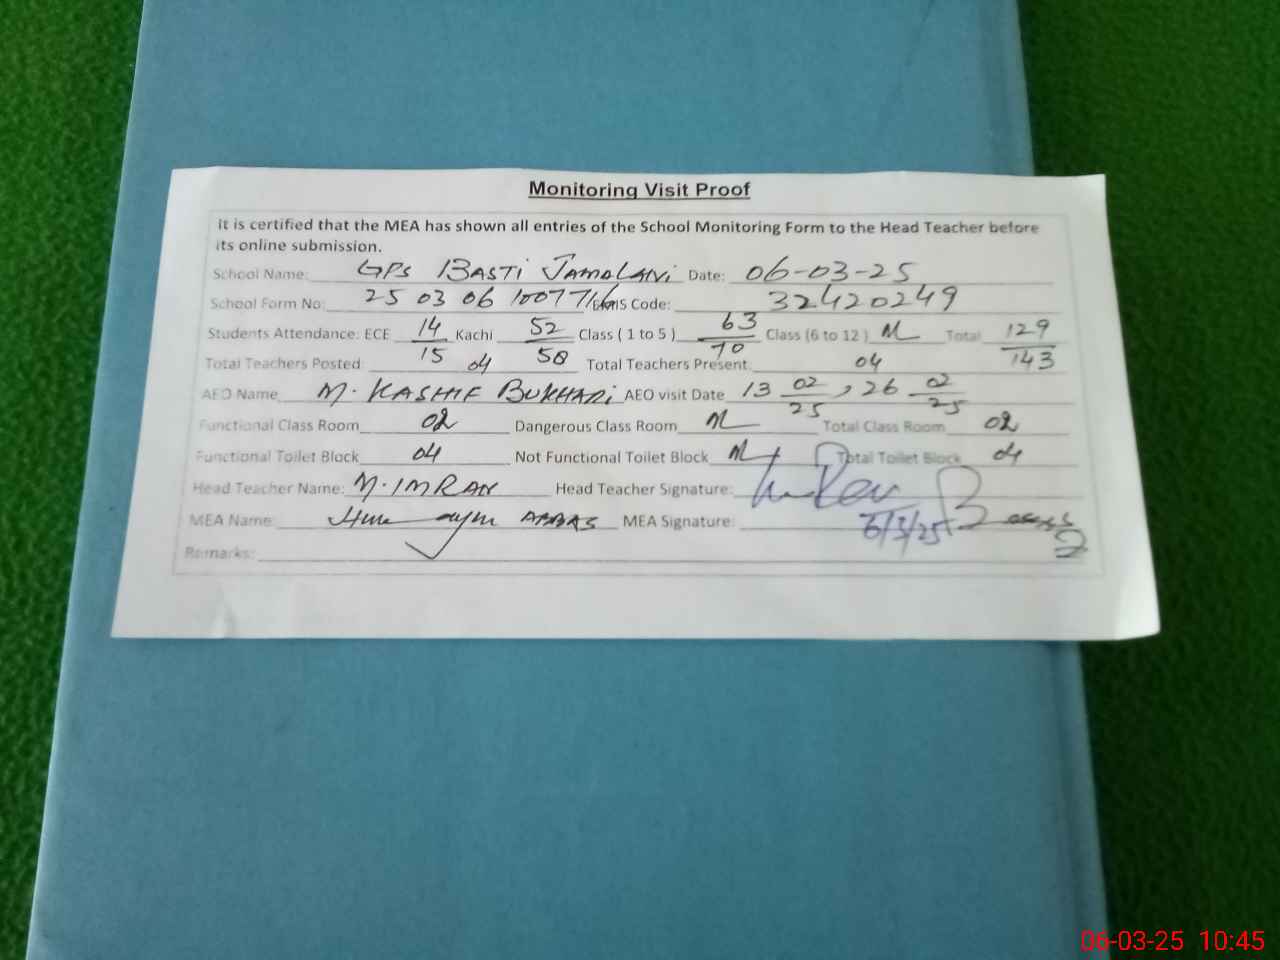 Monitoring Visit Proof
It is certified that the MEA has shown all entries of the School Monitoring Form to the Head Teacher before
its online submission.
School Name: GPS BASTI JAMALANI Date: 06-03-25
School Form No: 25 03 06 1007716 EMIS Code: 32420249
Students Attendance: ECE 14/15 Kachi 52/58 Class ( 1 to 5 ) 63/70 Class (6 to 12 ) NL Total 129/143
Total Teachers Posted: 04 Total Teachers Present: 04
AEO Name M. KASHIF BUKHARI AEO visit Date 13 02/25 , 26 02/25
Functional Class Room 02 Dangerous Class Room NL Total Class Room 02
Functional Toilet Block 04 Not Functional Toilet Block NL Total Toilet Block 04
Head Teacher Name: M. IMRAN Head Teacher Signature:
6/3/25
MEA Name: ABBAS MEA Signature:
Remarks:
06-03-25 10:45